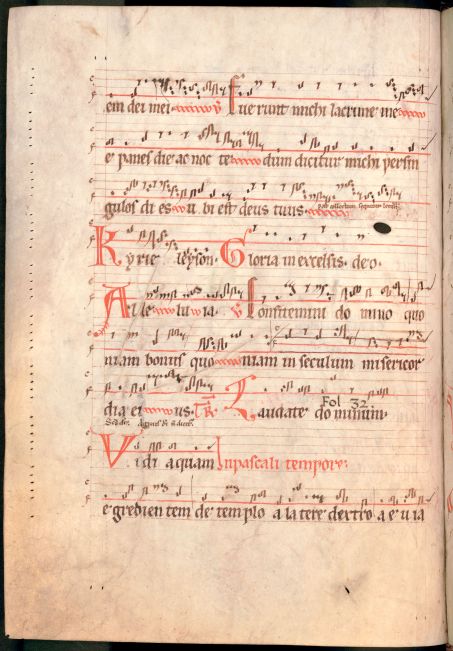 em dei mei V Fue runt michi lacrime me
e panes die ac noc te dum dicitur michi persin
gulos di es u bi est deus tuus.
Kyrie leyson. Gloria in excelsis deo.
Al le lu ia. V Confitemini do mino quo
niam bonus quo niam in seculum misericor
dia ei us. TR Laudate dominum.
Fol 32
Vidi aquam In pascali tempore:
e gredien tem de templo a la tere dextro a e u ia